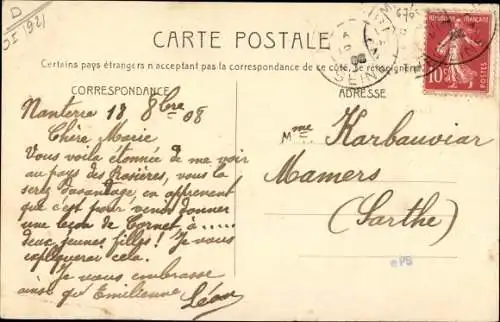 D
DI 921
CARTE POSTALE
Certains pays étrangers n'acceptant pas la correspondance de ce côté, se renseigner
CORRESPONDANCE
ADRESSE
REPUBLIQUE FRANÇAISE
10c
POSTES
SEINE
Nanterre 18 8bre 08
Chère Marie
Vous voilà étonnée de me voir
au pays des Rosières, vous la
serez davantage en apprenant
que c'est pour venir donner
une leçon de Cornet à .....
deux jeunes filles! Je vous
expliquerai cela.
Je vous embrasse
ainsi qu'Emilienne Léon
Mme Karbauviar
Mamers
(Sarthe)